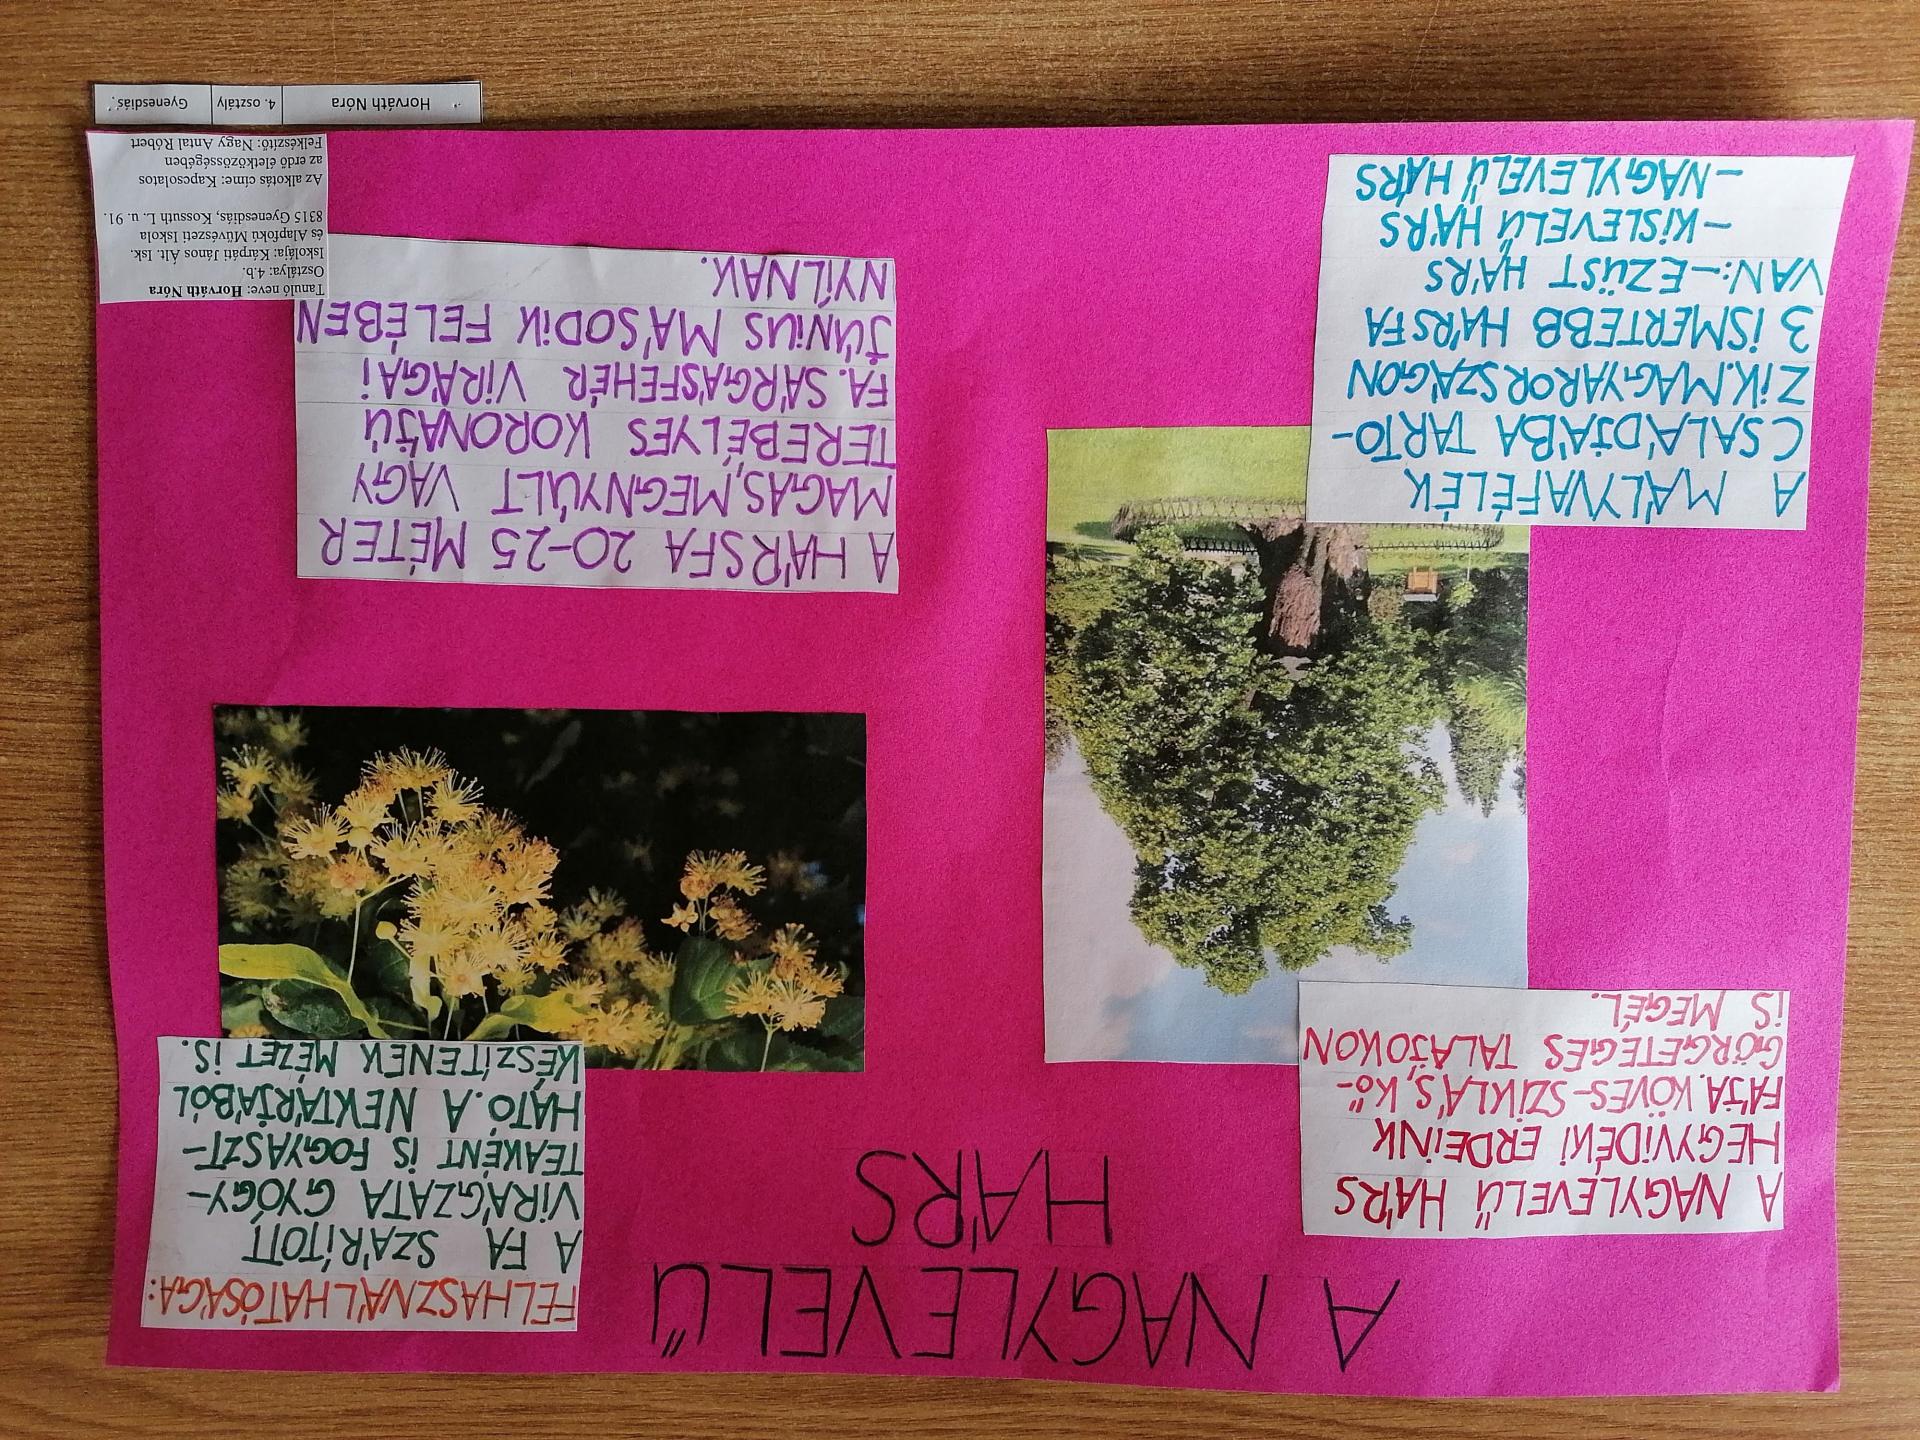 A NAGYLEVELŰ
HÁRS
A NAGYLEVELŰ HÁRS
HEGYVIDÉKI ERDEINK
FÁJA. KÖVES-SZIKLÁS, KŐ-
GÖRGETEGES TALAJOKON
IS MEGÉL.
FELHASZNÁLHATÓSÁGA:
A FA SZÁRÍTOTT
VIRÁGZATA GYÓGY-
TEAKÉNT IS FOGYASZT-
HATÓ. A NEKTÁRJÁBÓL
KÉSZÍTENEK MÉZET IS.
A MÁLYVAFÉLÉK
CSALÁDJÁBA TARTO-
ZIK. MAGYARORSZÁGON
3 ISMERTEBB HÁRSFA
VAN:-EZÜST HÁRS
-KISLEVELŰ HÁRS
-NAGYLEVELŰ HÁRS
A HÁRSFA 20-25 MÉTER
MAGAS, MEGNYÚLT VAGY
TEREBÉLYES KORONÁJÚ
FA. SÁRGÁSFEHÉR VIRÁGAI
JÚNIUS MÁSODIK FELÉBEN
NYÍLNAK.
Tanuló neve: Horváth Nóra
Osztálya: 4.b.
Iskolája: Kárpáti János Ált. Isk.
és Alapfokú Művészeti Iskola
8315 Gyenesdiás, Kossuth L. u. 91.
Az alkotás címe: Kapcsolatos
az erdő életközösségében
Felkészítő: Nagy Antal Róbert
Horváth Nóra 4. osztály Gyenesdiás